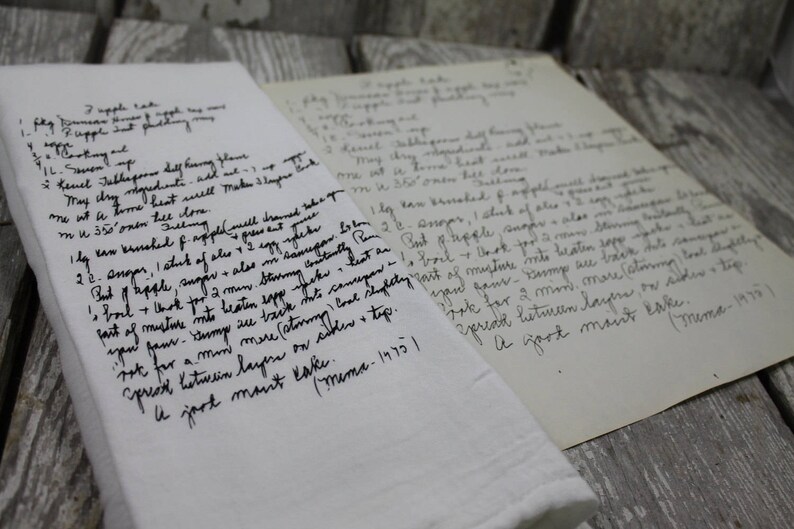 P apple Cake
1 pkg Duncan Hines P apple cake mix
1 - P apple Inst pudding mix
4 eggs
Cooking oil
Seven-up
2 Level Tablespoons Self Rising flour
Mix dry ingredients - add oil - 7 up eggs
one at a time beat well Makes 3 layers Cook
in a 350° oven till done.
Filling
1 lg can crushed p. apple (well drained take
+ press out juice
2 C. sugar, 1 stick of oleo + 2 egg yolks
Put p apple, sugar + oleo in saucepan. bring
to boil + cook for 2 min. Stirring Constantly Pour
part of mixture into beaten egg yolks + beat as
you pour - Dump all back into saucepan +
cook for 2 min more (stirring) Cool slightly
spread between layers, on sides + top.
A good moist Cake.
(Mema - 1975)
P apple Cake
1 pkg Duncan Hines P apple cake mix
P apple Inst pudding mix
4 eggs
Cooking oil
Seven up
2 Level Tablespoons Self Rising flour
Mix dry ingredients - add oil - 7 up eggs
one at a time beat well Makes 3 layers Cook
in a 350° oven till done
Filling
1 lg can crushed p. apple (well drained
+ press out juice
2 C. sugar, 1 stick of oleo + 2 egg yolks
Put p apple, sugar + oleo in saucepan. bring
to boil + cook for 2 min. Stirring Constantly
part of mixture into beaten egg yolks + beat as
you pour - Dump all back into saucepan +
cook for 2 min. more (stirring) Cool slightly
spread between layers, on sides + top.
A good moist Cake.
(Mema - 1975)